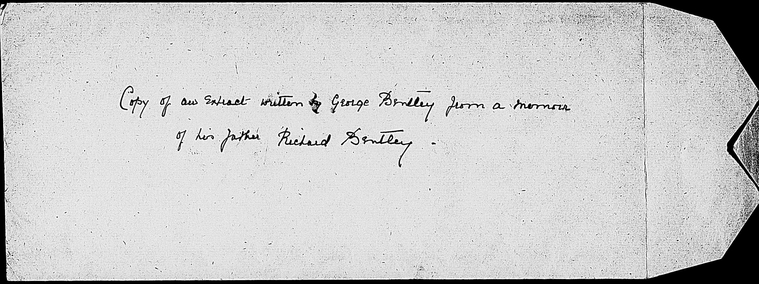 Copy of an Extract written by George Bentley from a memoir
of his father Richard Bentley -